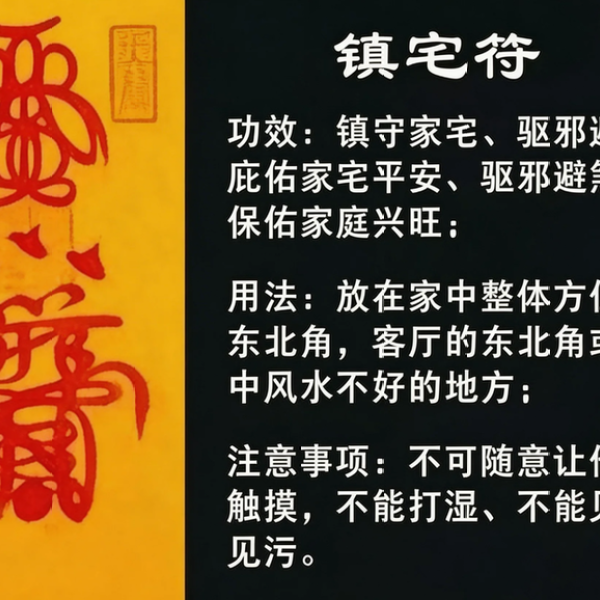 镇宅符
功效：镇守家宅、驱邪
庇佑家宅平安、驱邪避
保佑家庭兴旺；
用法：放在家中整体方
东北角，客厅的东北角
中风水不好的地方；
注意事项：不可随意让
触摸，不能打湿、不能
见污。